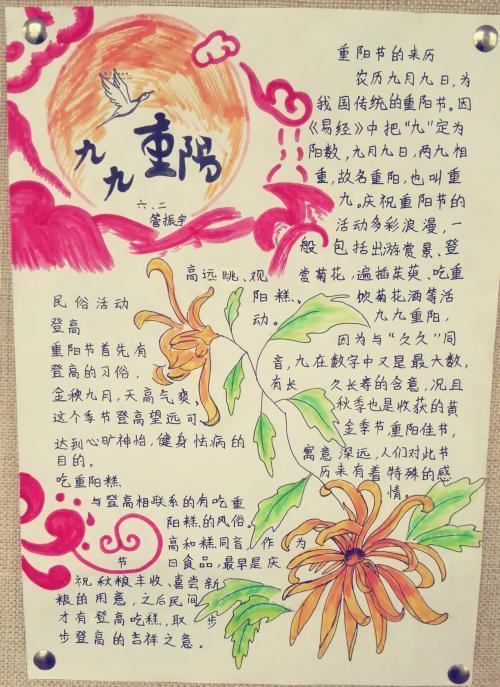 九九重阳
六、二
管振宇
重阳节的来历
农历九月九日,为
我国传统的重阳节。因
《易经》中把“九”定为
阳数,九月九日,两九相
重,故名重阳,也叫重
九。庆祝重阳节的
活动多彩浪漫,一
般包括出游赏景、登
高远眺、观赏菊花,遍插茱萸、吃重
阳糕、饮菊花酒等活
动。九九重阳,
因为与“久久”同
音,九在数字中又是最大数,
有长久长寿的含意,况且
秋季也是收获的黄
金季节重阳佳节,
寓意深远,人们对此节
历来有着特殊的感
情。
民俗活动
登高
重阳节首先有
登高的习俗,
金秋九月,天高气爽
这个季节登高望远可
达到心旷神怡,健身怯病的
目的。
吃重阳糕
与登高相联系的有吃重
阳糕的风俗。
高和糕同音,作为
节日食品,最早是庆
祝秋粮丰收、喜尝新
粮的用意,之后民间
才有登高吃糕,取步
步登高的吉祥之意。